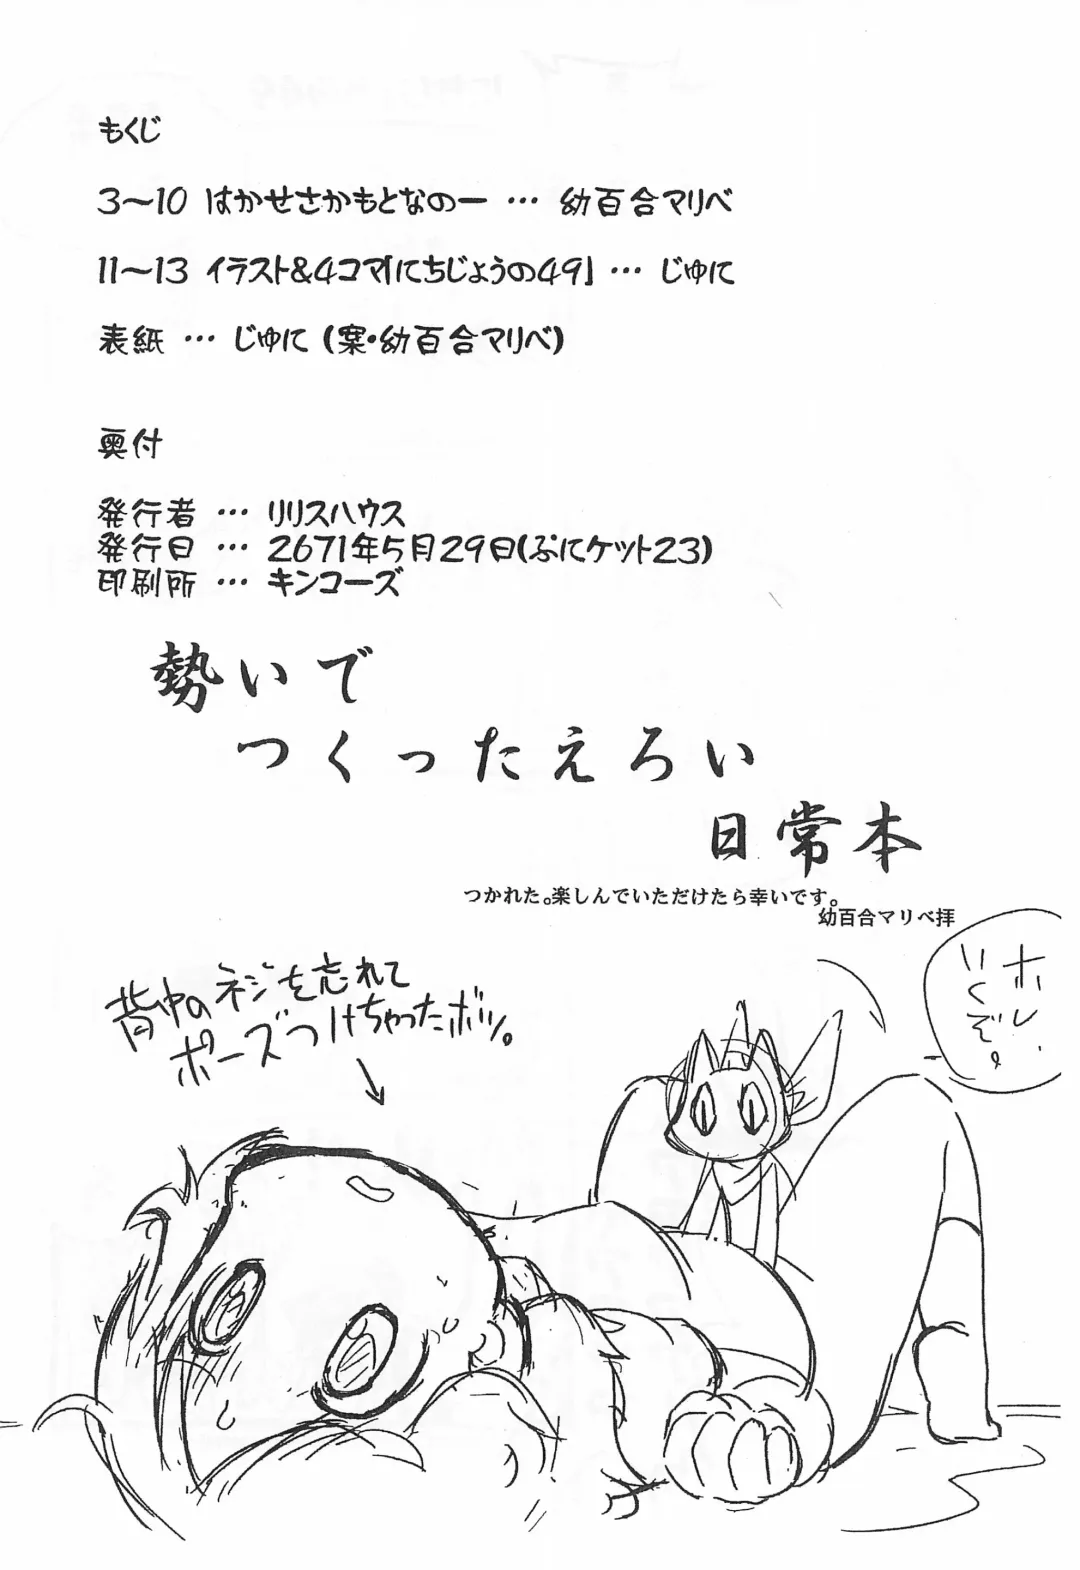 もくじ
3～10 はかせさかもとなのー … 幼百合マリベ
11～13 イラスト&4コマ「にちじょうの49」 … じゅに
表紙 … じゅに (案・幼百合マリベ)
奥付
発行者 … リリスハウス
発行日 … 2671年5月29日(ぷにケット23)
印刷所 … キンコーズ
勢いで
つくったえろい
日常本
つかれた。楽しんでいただけたら幸いです。
幼百合マリベ拝
ホレ、
いくぞ。
背中のネジを忘れて
ポーズつけちゃったボツ。